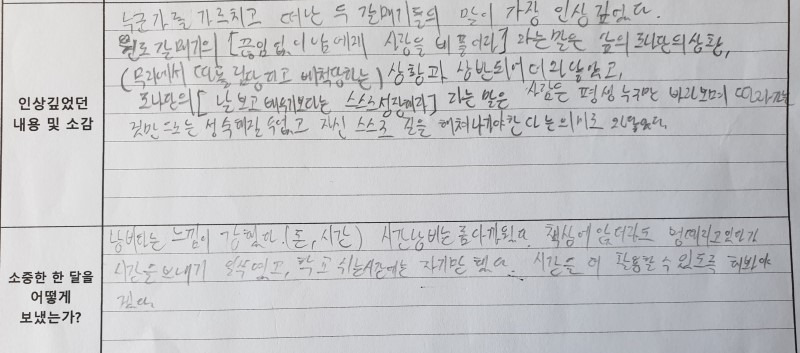 누군가를 가르치고 떠난 두 갈매기들의 말이 가장 인상 깊었다.
원로갈매기의 [끊임없이 남에게 사랑을 베풀어라] 라는 말은 앞의 조나단의 상황,
(무리에서 따돌림당하고 배척당하는) 상황과 상반되어 더 와 닿았고,
인상깊었던
내용 및 소감
조나단의 [날 보고 배우기보다는 스스로 성장해라] 라는 말은 사람은 평생 누구만 바라보며 따라가는
것만으로는 성숙해질 수 없고 자신 스스로 길을 헤쳐나가야 한다는 의미로 와 닿았다.
낭비라는 느낌이 강했다. (돈, 시간) 시간낭비는 책상에 앉더라도
시간을 보내기 일쑤였고, 학교 쉬는시간에는 자기만 했다. 시간을 더 활용할 수 있도록 해봐야
겠다.
소중한 한 달을
어떻게
보냈는가?